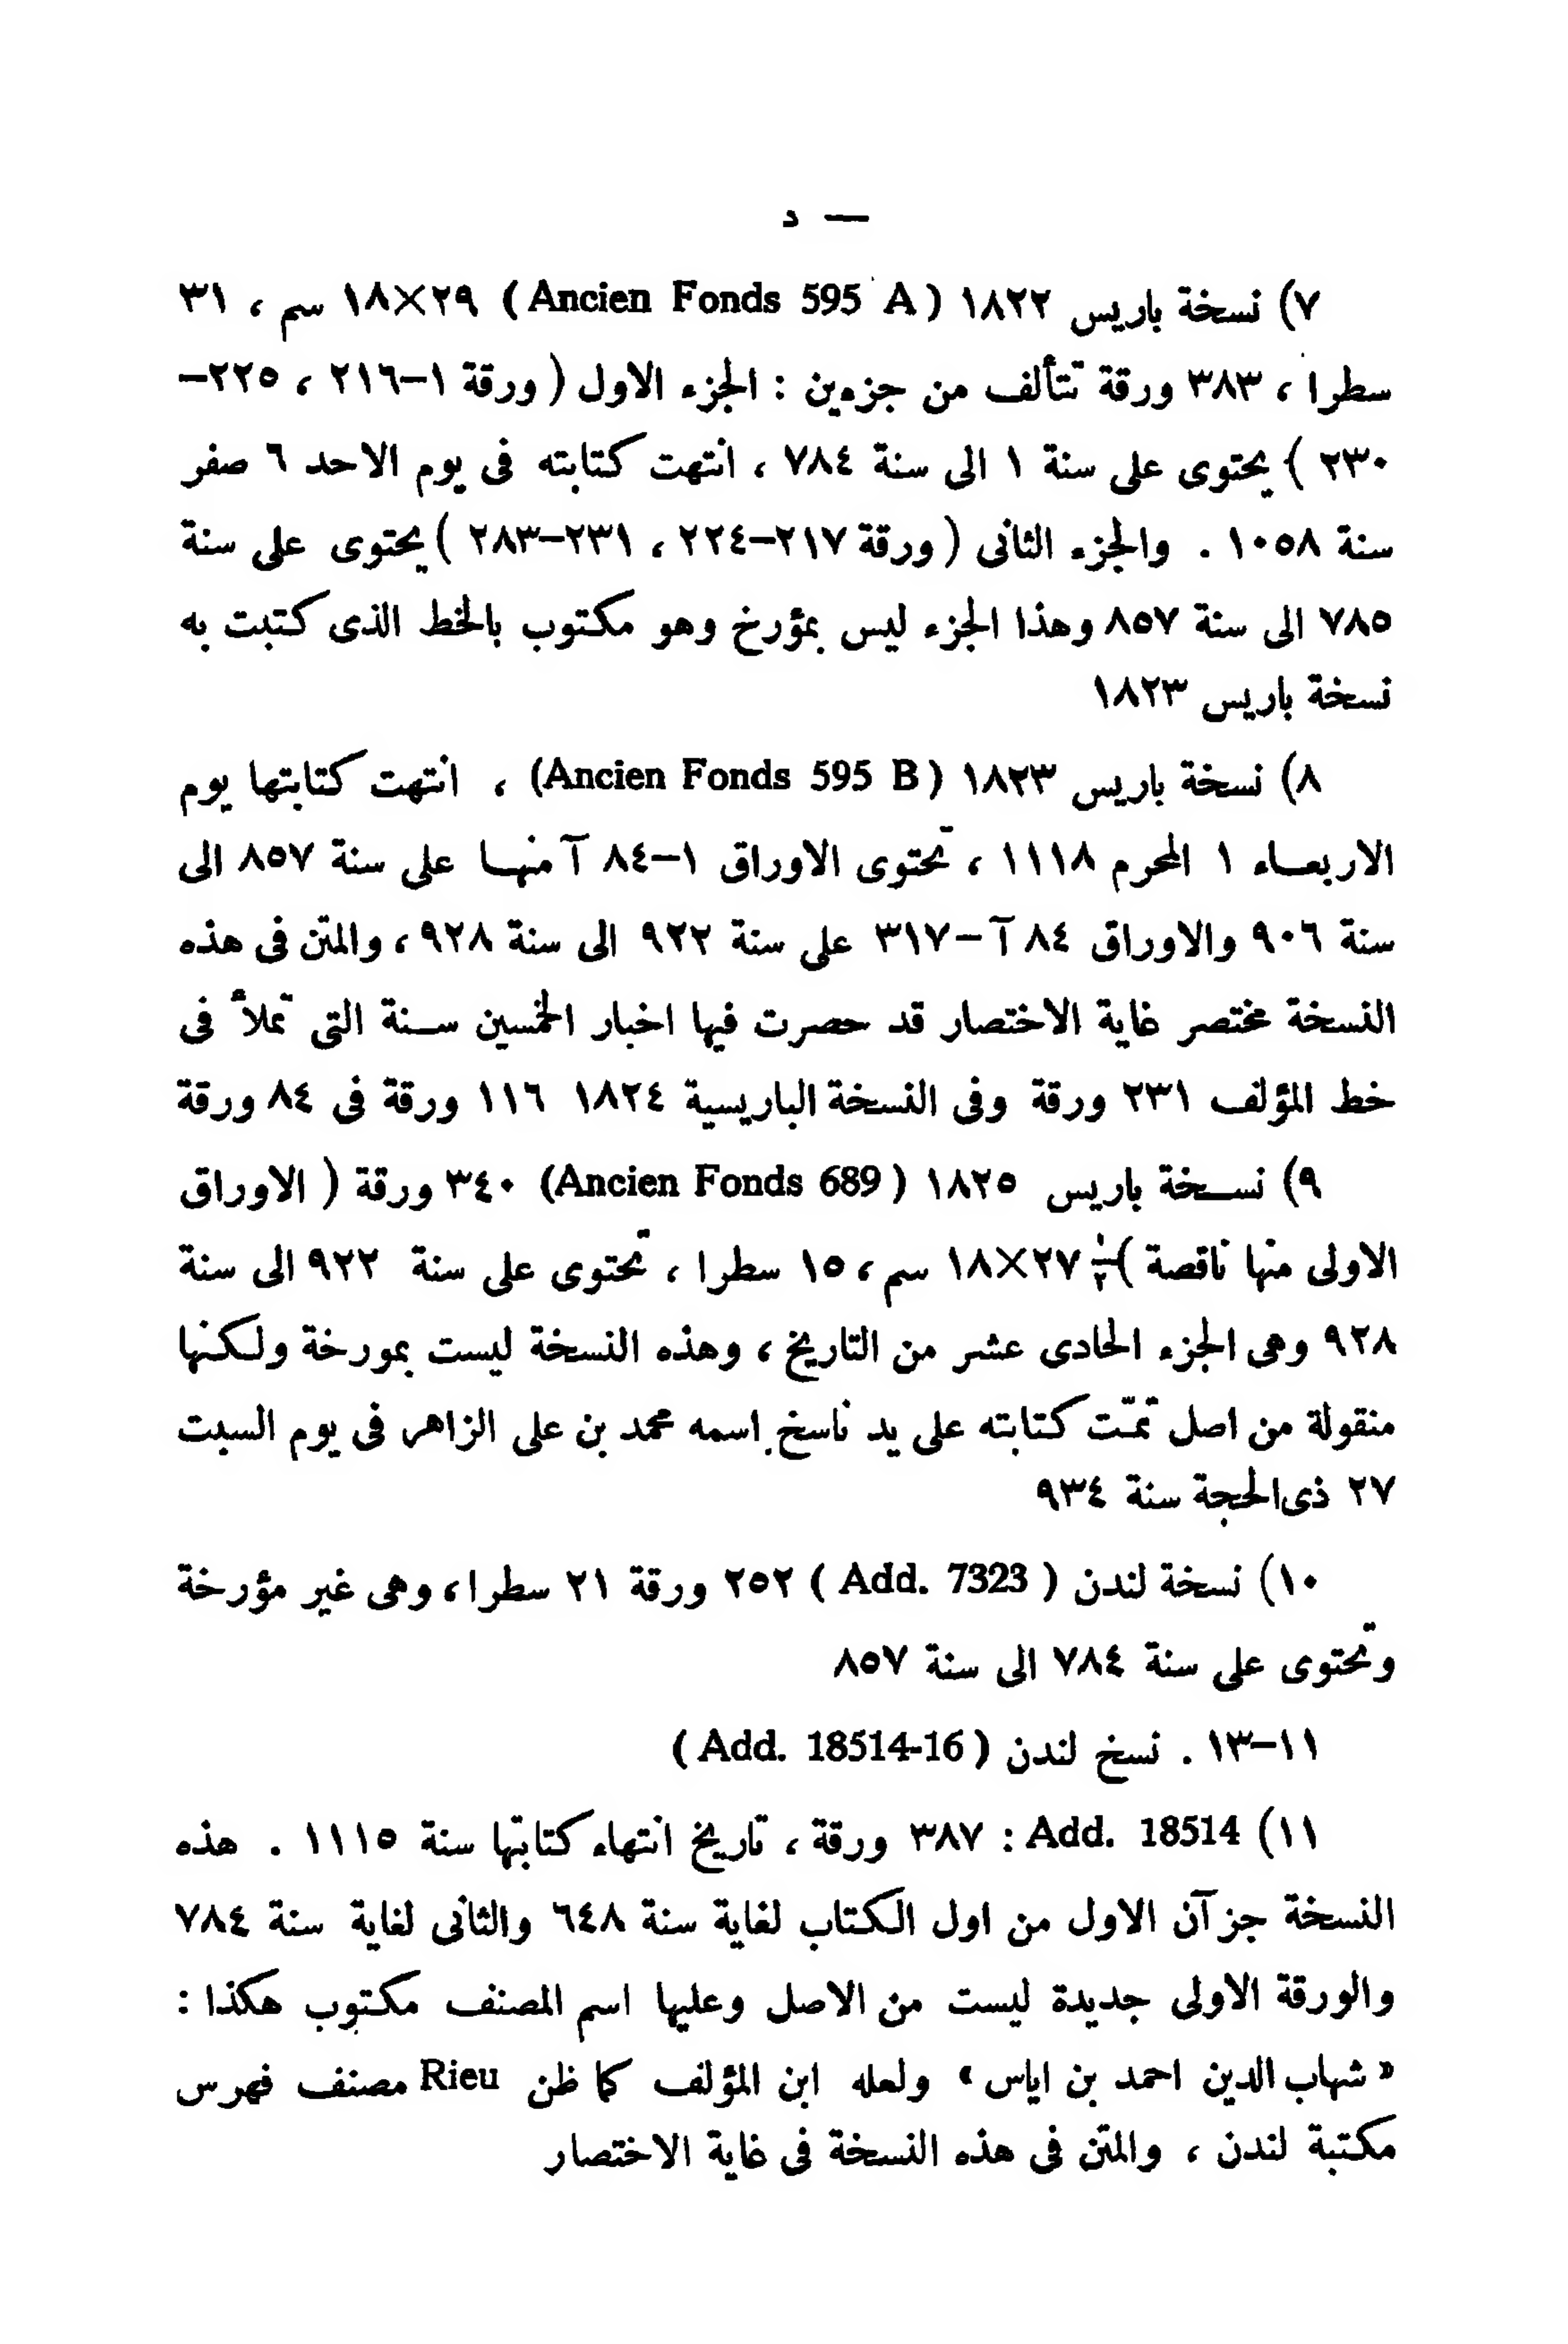 — د
٧) نسخة باريس ١٨٢٢ (Ancien Fonds 595 A) ١٨×٢٩ سم ، ٣١
سطرا ، ٣٨٣ ورقة تتألف من جزءين : الجزء الاول ( ورقة ١–٢١٦ ، ٢٢٥–
٢٣٠ ) يحتوى على سنة ١ الى سنة ٧٨٤ ، انتهت كتابته فى يوم الاحد ٦ صفر
سنة ١٠٥٨ . والجزء الثانى ( ورقة ٢١٧–٢٢٤ ، ٢٣١–٢٨٣ ) يحتوى على سنة
٧٨٥ الى سنة ٨٥٧ وهذا الجزء ليس بمؤرخ وهو مكتوب بالخط الذى كتبت به
نسخة باريس ١٨٢٣
٨) نسخة باريس ١٨٢٣ (Ancien Fonds 595 B) ، انتهت كتابتها يوم
الاربعاء ١ المحرم ١١١٨ ، تحتوى الاوراق ١–٨٤ آ منها على سنة ٨٥٧ الى
سنة ٩٠٦ والاوراق ٨٤ آ–٣١٧ على سنة ٩٢٢ الى سنة ٩٢٨ ، والمتن فى هذه
النسخة مختصر غاية الاختصار قد حصرت فيها اخبار الخمسين سنة التى تملأ فى
خط المؤلف ٢٣١ ورقة وفى النسخة الباريسية ١٨٢٤ ١١٦ ورقة فى ٨٤ ورقة
٩) نسخة باريس ١٨٢٥ (Ancien Fonds 689) ٣٤٠ ورقة ( الاوراق
الاولى منها ناقصة ) ١/٢ ١٨×٢٧ سم ، ١٥ سطرا ، تحتوى على سنة ٩٢٢ الى سنة
٩٢٨ وهى الجزء الحادى عشر من التاريخ ، وهذه النسخة ليست بمورخة ولكنها
منقولة من اصل تمّت كتابته على يد ناسخ اسمه محمد بن على الزاهر فى يوم السبت
٢٧ ذى الحجة سنة ٩٣٤
١٠) نسخة لندن ( Add. 7323 ) ٢٥٢ ورقة ٢١ سطرا ، وهى غير مؤرخة
وتحتوى على سنة ٧٨٤ الى سنة ٨٥٧
١١–١٣ . نسخ لندن ( Add. 18514-16 )
١١) Add. 18514 : ٣٨٧ ورقة ، تاريخ انتهاء كتابتها سنة ١١١٥ . هذه
النسخة جزآن الاول من اول الكتاب لغاية سنة ٦٤٨ والثانى لغاية سنة ٧٨٤
والورقة الاولى جديدة ليست من الاصل وعليها اسم المصنف مكتوب هكذا :
« شهاب الدين احمد بن اياس » ولعله ابن المؤلف كما ظن Rieu مصنف فهرس
مكتبة لندن ، والمتن فى هذه النسخة فى غاية الاختصار